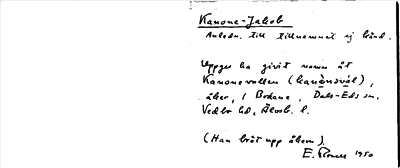 Kanone-Jakob
Anledn. till tillnamnet ej känd.
Uppges ha givit namn åt
Kanonevallen (kanònəvál),
åker, i Bodane, Dals-Eds sn.
Vedbo hd, Älvsb. l.
(Han bröt upp åkern)
E. 1950